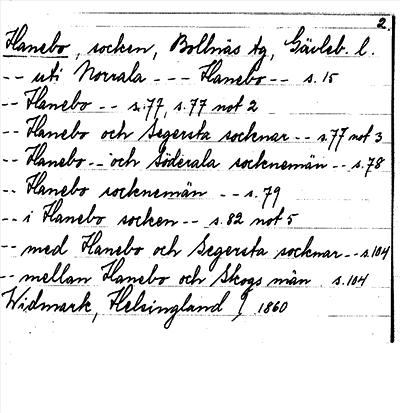 2.
Hanebo, socken, Bollnäs tg, Gävleb. l.
-- uti Norrala --- Hanebo -- s. 15
-- Hanebo -- s. 77, s. 77 not 2
-- Hanebo och Segersta socknar -- s. 77 not 3
-- Hanebo -- och Söderala socknemän -- s. 78
-- Hanebo socknemän -- s. 79
-- i Hanebo socken -- s. 82 not 5
-- med Hanebo och Segersta socknar -- s. 104
-- mellan Hanebo och Skogs män s. 104
Widmark, Helsingland 1860